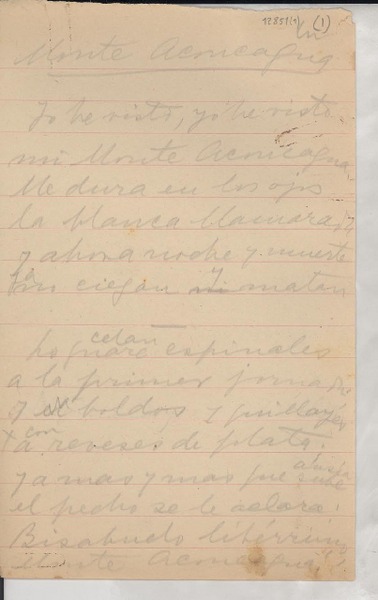 12851(1) (1)
Monte Aconcagua
Yo he visto, yo he visto
mi Monte Aconcagua.
Me dura en los ojos
la blanca llamara,
y ahora noche y muerte
ciegan ni y matan
celan
espinales
a la primer
y boldos y quillayes
con
a reveses de plata.
y a mas y mas que
el pecho se le aclara.
Bisabuelo libérrimo,
Monte Aconcagua!